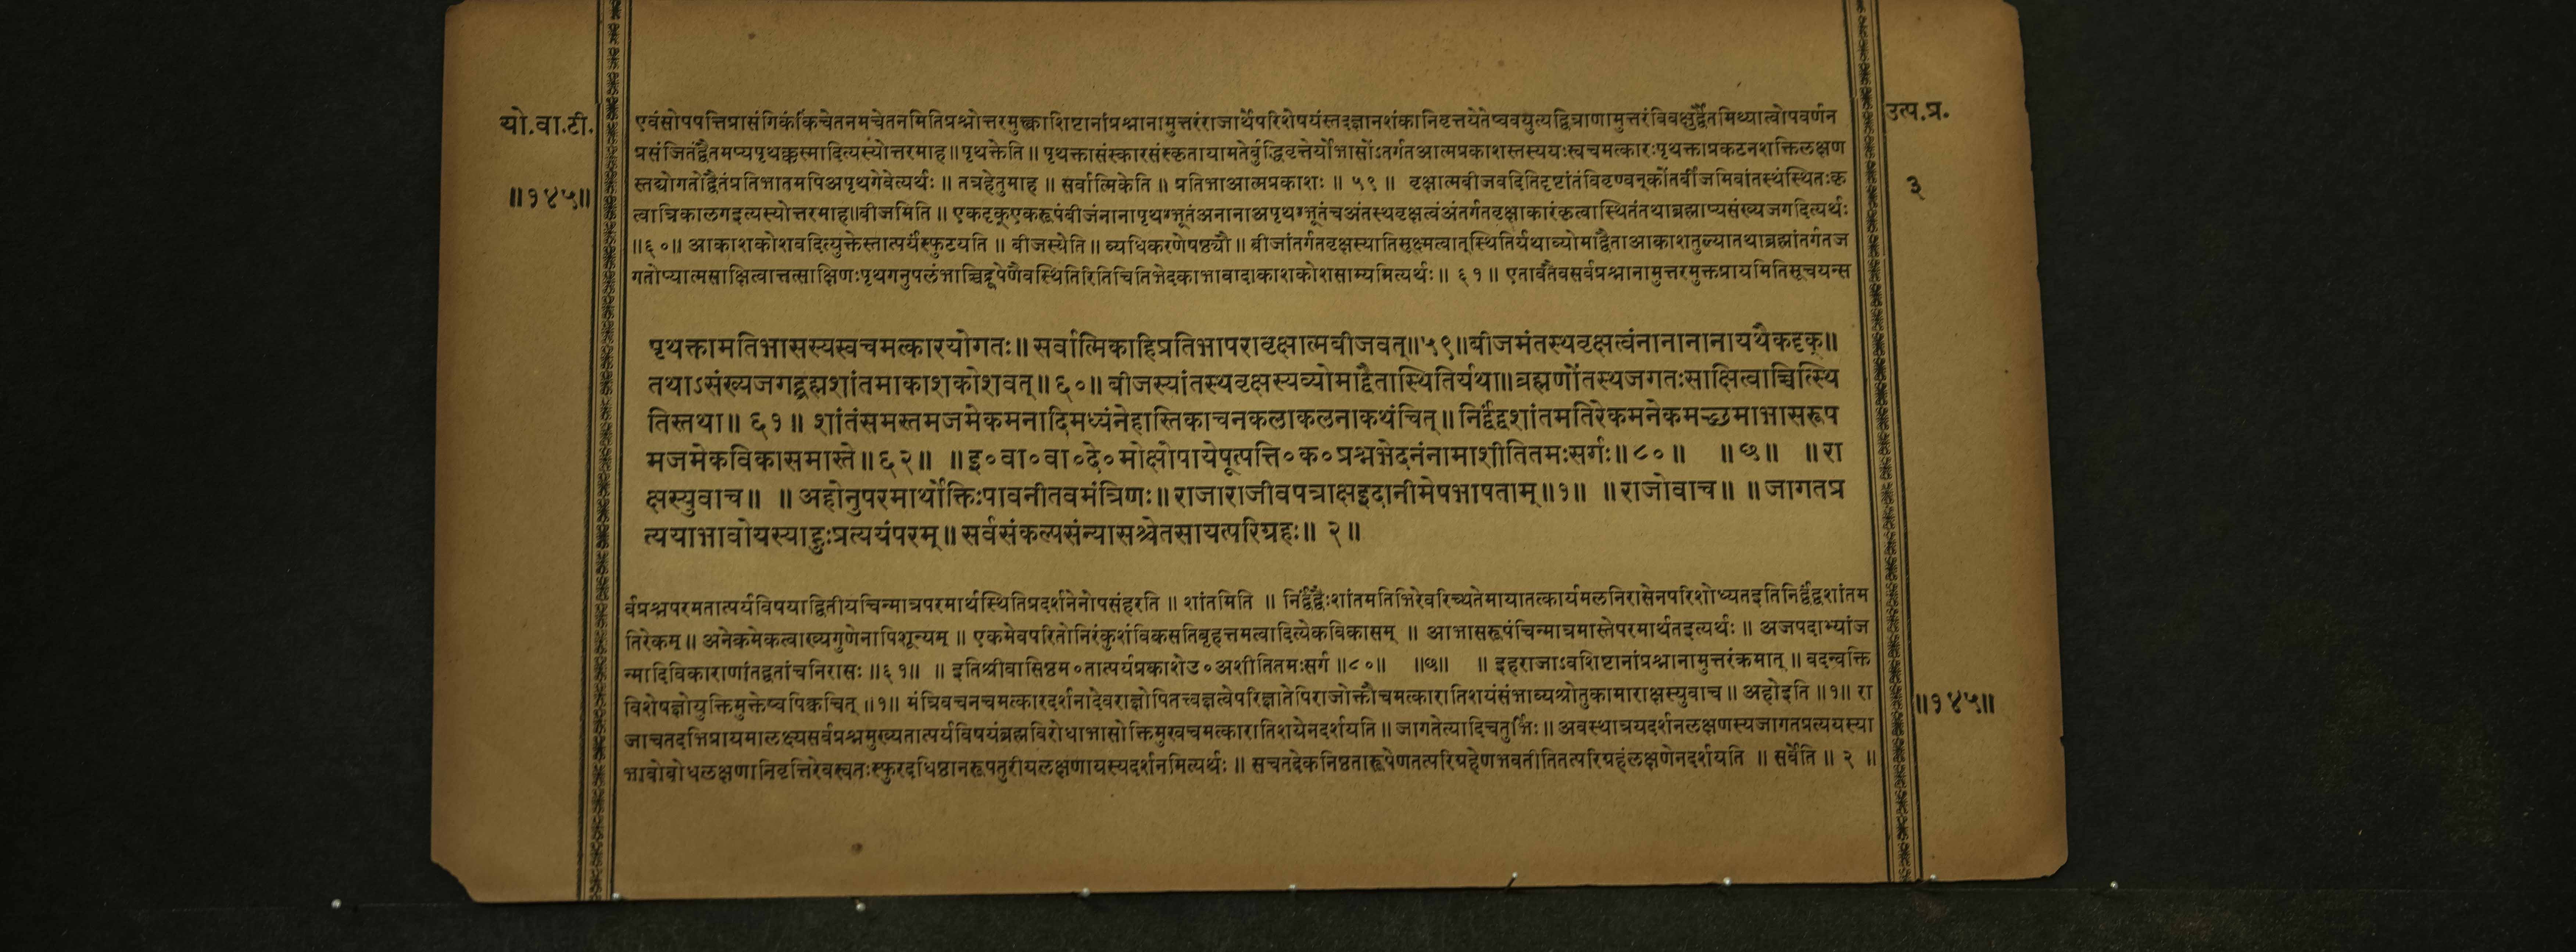 यो.वा.टी.
॥१४५॥
उत्प.प्र.
३
एवंसोपपत्तिप्रासंगिकंकिंचेतनमचेतनमितिप्रश्नोत्तरमुक्त्काशिष्टानांप्रश्नानामुत्तरंराजार्थेपरिशेषयंस्तदज्ञानशंकानिवृत्तयेतेष्ववयुत्यद्वित्राणामुत्तरंविवक्षुर्द्वैतमिथ्यात्वोपवर्णन
प्रसंजितंद्वैतमप्यपृथक्कस्मादित्यस्योत्तरमाह॥पृथक्तेति॥ पृथक्तासंस्कारसंस्कृतायामतेर्बुद्धिवृत्तेर्योभासोंऽतर्गतआत्मप्रकाशस्तस्ययःस्वचमत्कारःपृथक्ताप्रकटनशक्तिलक्षण
स्तद्योगतोद्वैतंप्रतिभातमपिअपृथगेवेत्यर्थः॥ तत्रहेतुमाह॥ सर्वात्मिकेति॥ प्रतिभाआत्मप्रकाशः॥ ५९॥ वृक्षात्मबीजवदितिदृष्टांतंविवृण्वन्कोंतर्बीजमिवांतस्थंस्थितःकृ
त्वात्रिकालगइत्यस्योत्तरमाह॥बीजमिति॥ एकदृक्एकरूपंबीजंनानापृथग्भूतंअनानाअपृथग्भूतंचअंतस्थवृक्षत्वंअंतर्गतवृक्षाकारंकृत्वास्थितंतथाब्रह्माप्यसंख्यजगदित्यर्थः
॥६०॥ आकाशकोशवदित्युक्तेस्तात्पर्यंस्फुटयति॥ बीजस्येति॥ व्यधिकरणेषष्ठ्यौ॥ बीजांतर्गतवृक्षस्यातिसूक्ष्मत्वात्स्थितिर्यथाव्योमाद्वैताआकाशतुल्यातथाब्रह्मांतर्गतज
गतोप्यात्मसाक्षित्वात्तत्साक्षिणःपृथगनुपलंभाच्चिद्रूपेणैवस्थितिरितिचितिभेदकाभावादाकाशकोशसाम्यमित्यर्थः॥ ६१॥ एतावतैवसर्वप्रश्नानामुत्तरमुक्तप्रायमितिसूचयन्स
पृथक्तामतिभासस्यस्वचमत्कारयोगतः॥ सर्वात्मिकाहिप्रतिभापरावृक्षात्मबीजवत्॥५९॥बीजमंतस्थवृक्षत्वंनानानानायथैकदृक्॥
तथाऽसंख्यजगद्ब्रह्मशांतमाकाशकोशवत्॥६०॥ बीजस्यांतस्थवृक्षस्यव्योमाद्वैतास्थितिर्यथा॥ब्रह्मणोंतस्थजगतःसाक्षित्वाच्चित्स्थि
तिस्तथा॥ ६१॥ शांतंसमस्तमजमेकमनादिमध्यंनेहास्तिकाचनकलाकलनाकथंचित्॥ निर्द्वंद्वशांतमतिरेकमनेकमच्छमाभासरूप
मजमेकविकासमास्ते॥६२॥ ॥इ०वा०वा०दे०मोक्षोपायेषूत्पत्ति०क०प्रश्नभेदनंनामाशीतितमःसर्गः॥८०॥ ॥छ॥ ॥रा
क्षस्युवाच॥ ॥अहोनुपरमार्थोक्तिःपावनीतवमंत्रिणः॥राजाराजीवपत्राक्षइदानीमेषभाषताम्॥१॥ ॥राजोवाच॥ ॥जागतप्र
त्ययाभावोयस्याहुःप्रत्ययंपरम्॥ सर्वसंकल्पसंन्यासश्चेतसायत्परिग्रहः॥ २॥
र्वप्रश्नपरमतात्पर्यविषयाद्वितीयचिन्मात्रपरमार्थस्थितिप्रदर्शनेनोपसंहरति॥ शांतमिति॥ निर्द्वंद्वैःशांतमतिभिरेवरिच्यतेमायातत्कार्यमलनिरासेनपरिशोध्यतइतिनिर्द्वंद्वशांतम
तिरेकम्॥ अनेकमेकत्वाख्यगुणेनापिशून्यम्॥ एकमेवपरितोनिरंकुशंविकसतिबृहत्तमत्वादित्येकविकासम्॥ आभासरूपंचिन्मात्रमास्तेपरमार्थतइत्यर्थः॥ अजपदाभ्यांज
न्मादिविकाराणांतद्वतांचनिरासः॥६१॥ ॥ इतिश्रीवासिष्ठम०तात्पर्यप्रकाशेउ०अशीतितमःसर्ग॥८०॥ ॥छ॥ ॥ इहराजाऽवशिष्टानांप्रश्नानामुत्तरंक्रमात्॥ वदन्वक्ति
विशेषज्ञोयुक्तिमुक्तेष्वपिक्वचित्॥१॥ मंत्रिवचनचमत्कारदर्शनादेवराज्ञोपितत्त्वज्ञत्वेपरिज्ञातेपिराजोक्तौचमत्कारातिशयंसंभाव्यश्रोतुकामाराक्षस्युवाच॥ अहोइति॥१॥ रा
जाचतदभिप्रायमालक्ष्यसर्वप्रश्नमुख्यतात्पर्यविषयंब्रह्मविरोधाभासोक्तिमुखचमत्कारातिशयेनदर्शयति॥ जागतेत्यादिचतुर्भिः॥ अवस्थात्रयदर्शनलक्षणस्यजागतप्रत्ययस्या
भावोबोधलक्षणानिवृत्तिरेवस्वतःस्फुरदधिष्ठानरूपतुरीयलक्षणायस्यदर्शनमित्यर्थः॥ सचतदेकनिष्ठतारूपेणतत्परिग्रहेणभवतीतितत्परिग्रहंलक्षणेनदर्शयति॥ सर्वेति॥ २॥
॥१४५॥